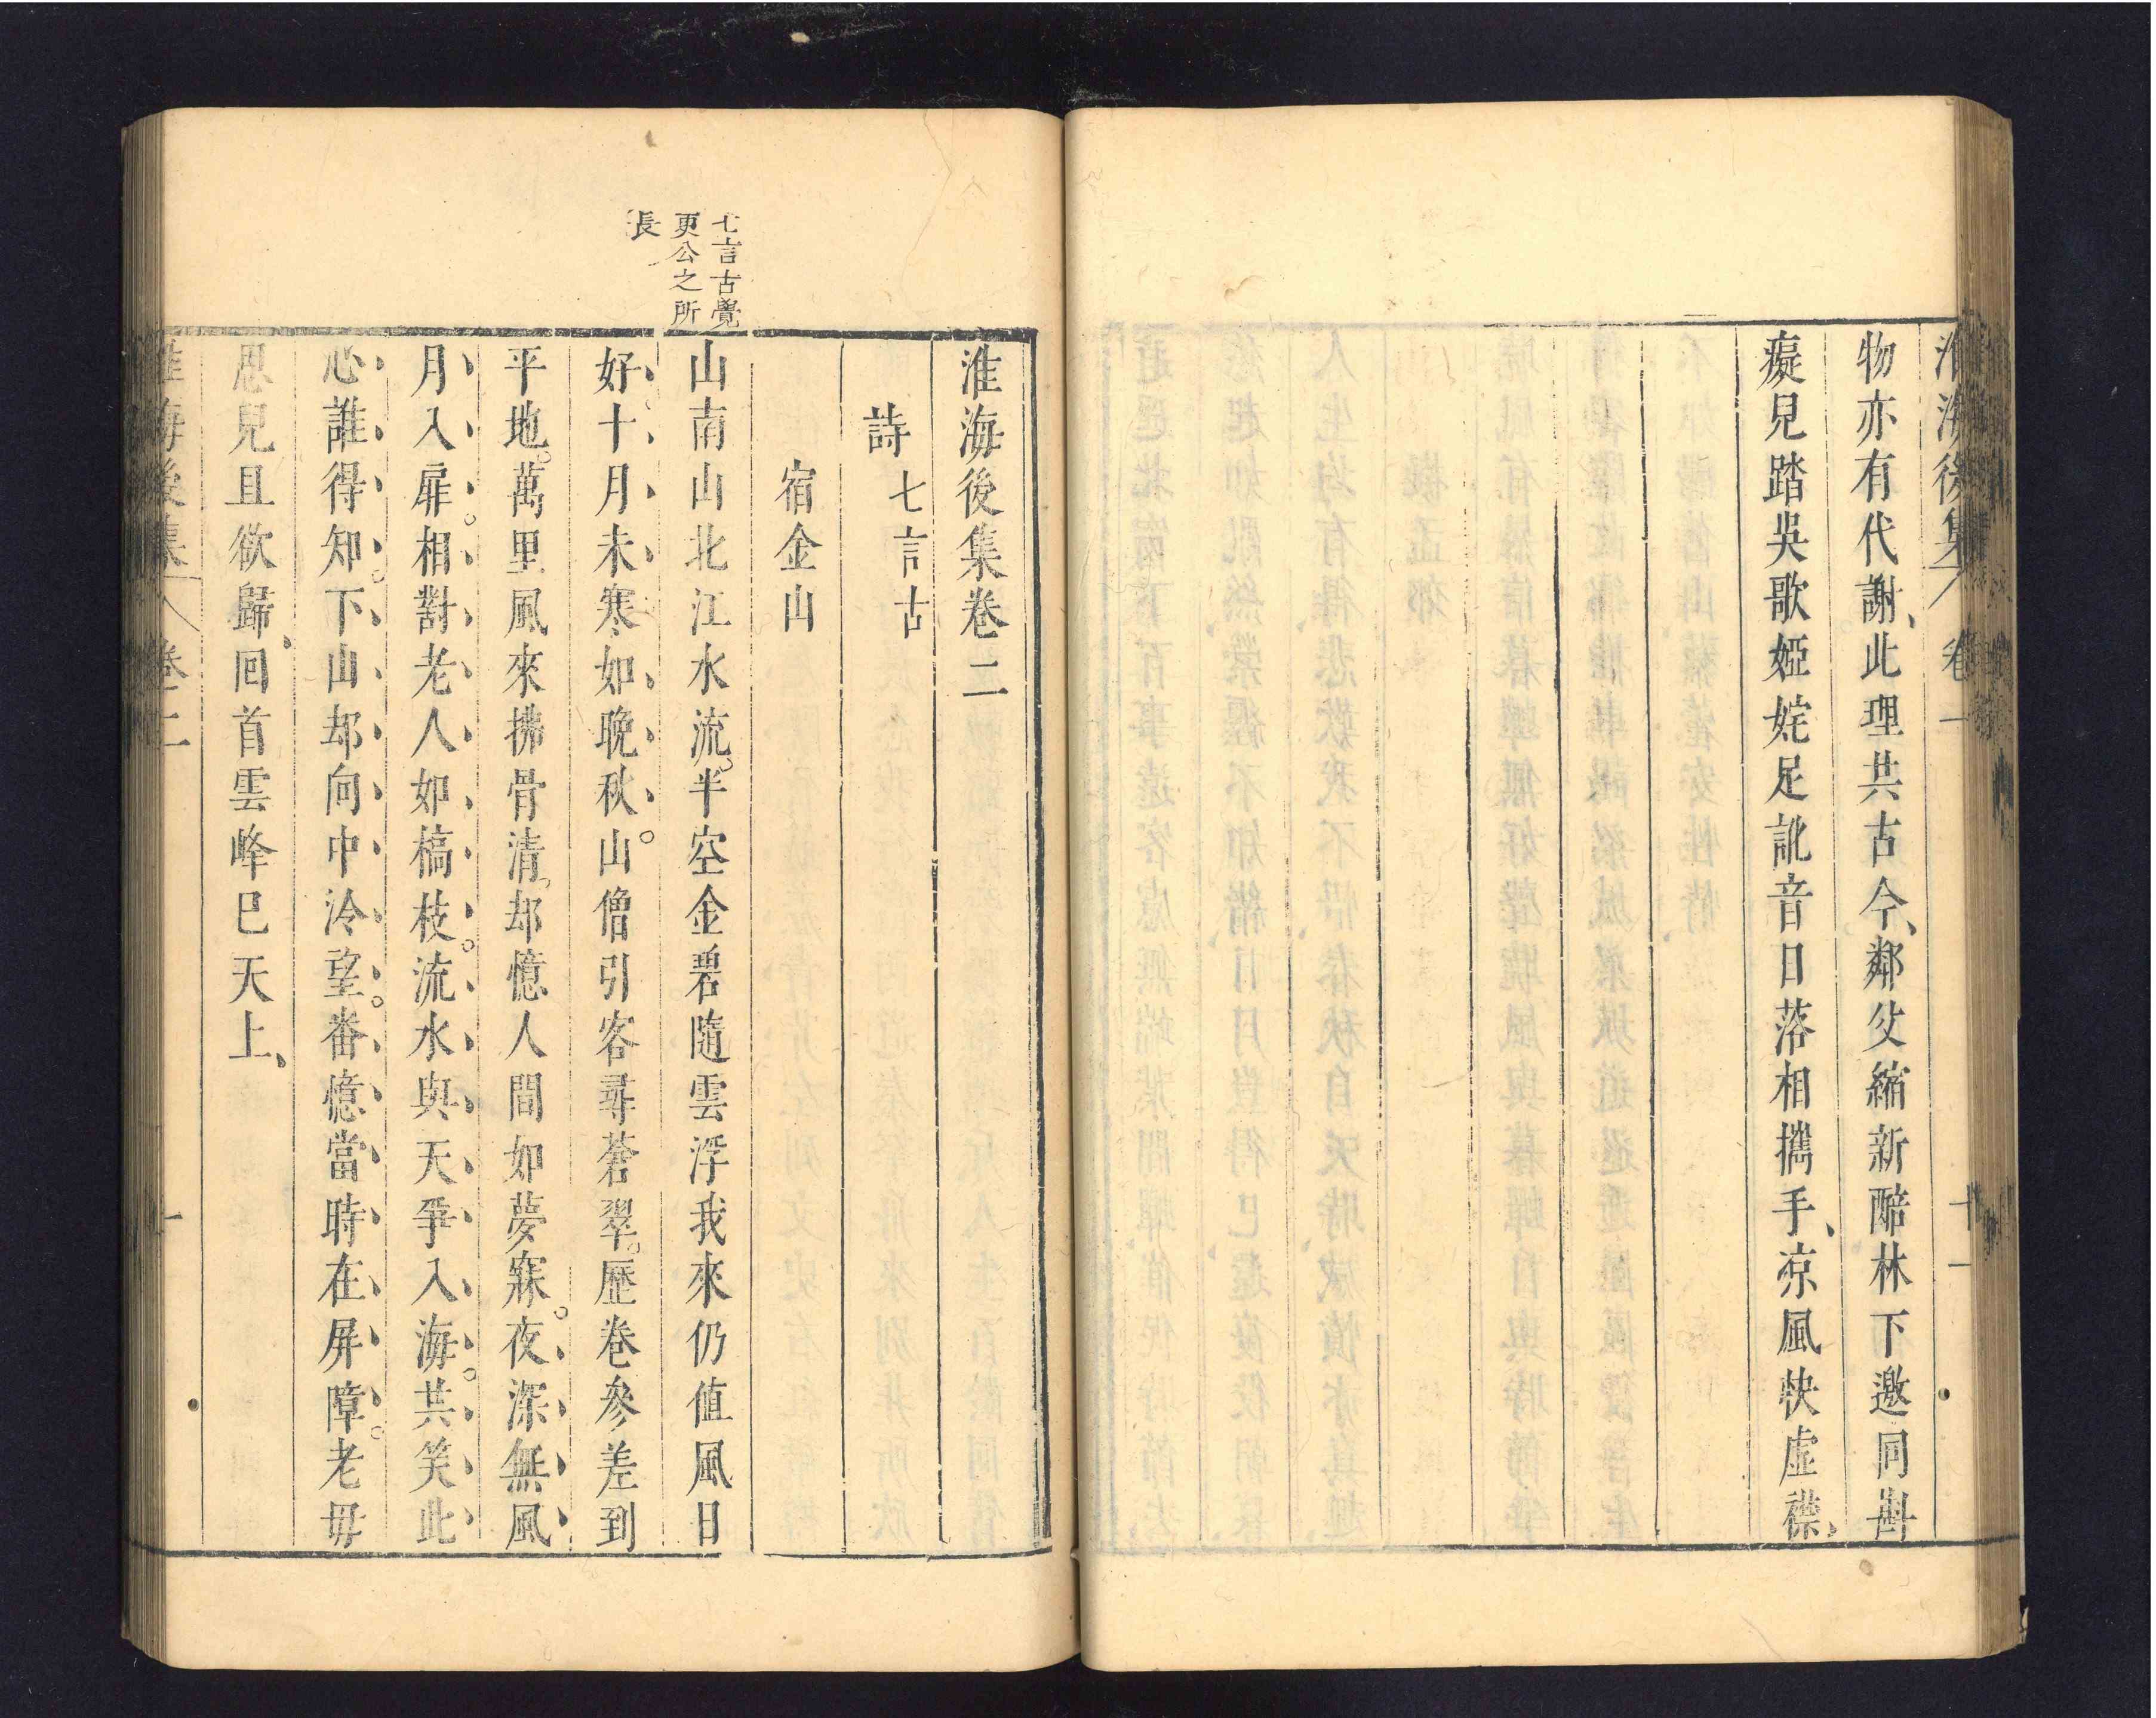 淮海後集 卷一 十一
物亦有代謝、此理共古今、鄰父縮新醅林下邀同斟
癡兒踏吳歌婭姹足訛音日落相攜手、凉風快虛襟、
淮海後集卷二
詩 七言古
宿金山
七言古覺
更公之所
長
山南山北江水流。半空金碧隨雲浮我來仍值風日
好十月未寒如晚秋。山僧引客尋蒼翠。歷卷參差到
平地。萬里風來拂骨清。却憶人間如夢寐。夜深無風
月入扉。相對老人如槁枝。流水與天爭入海。共笑此
心誰得知。下山却向中泠望。番憶當時在屏障。老毋
思兒且欲歸、囘首雲峰巳天上、
淮海後集 卷二 一